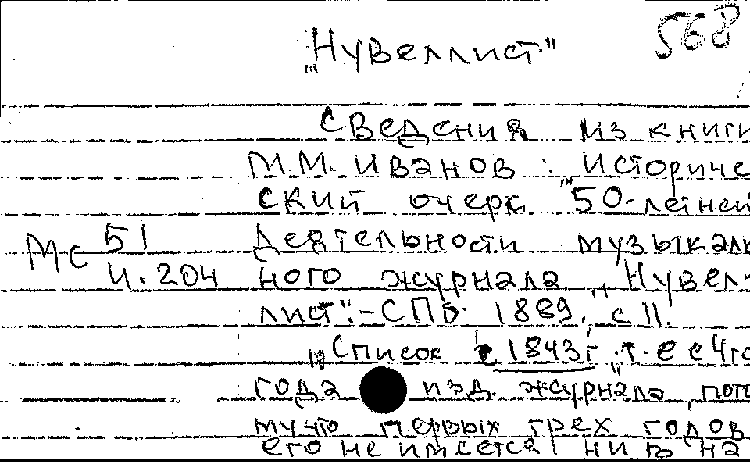 568
„Нувеллист"
Сведения из книги
М.М. Иванов. Историче-
ский очерк „50-летней
Мс 51
И.204
деятельности музыкаль
ного журнала „Нувел-
лист".-СПб 1889, с 11.
„Список с 1843 г, т.е с 4го
года изд. журнала, пот
му что первых трех годов
его не имеется ни в на